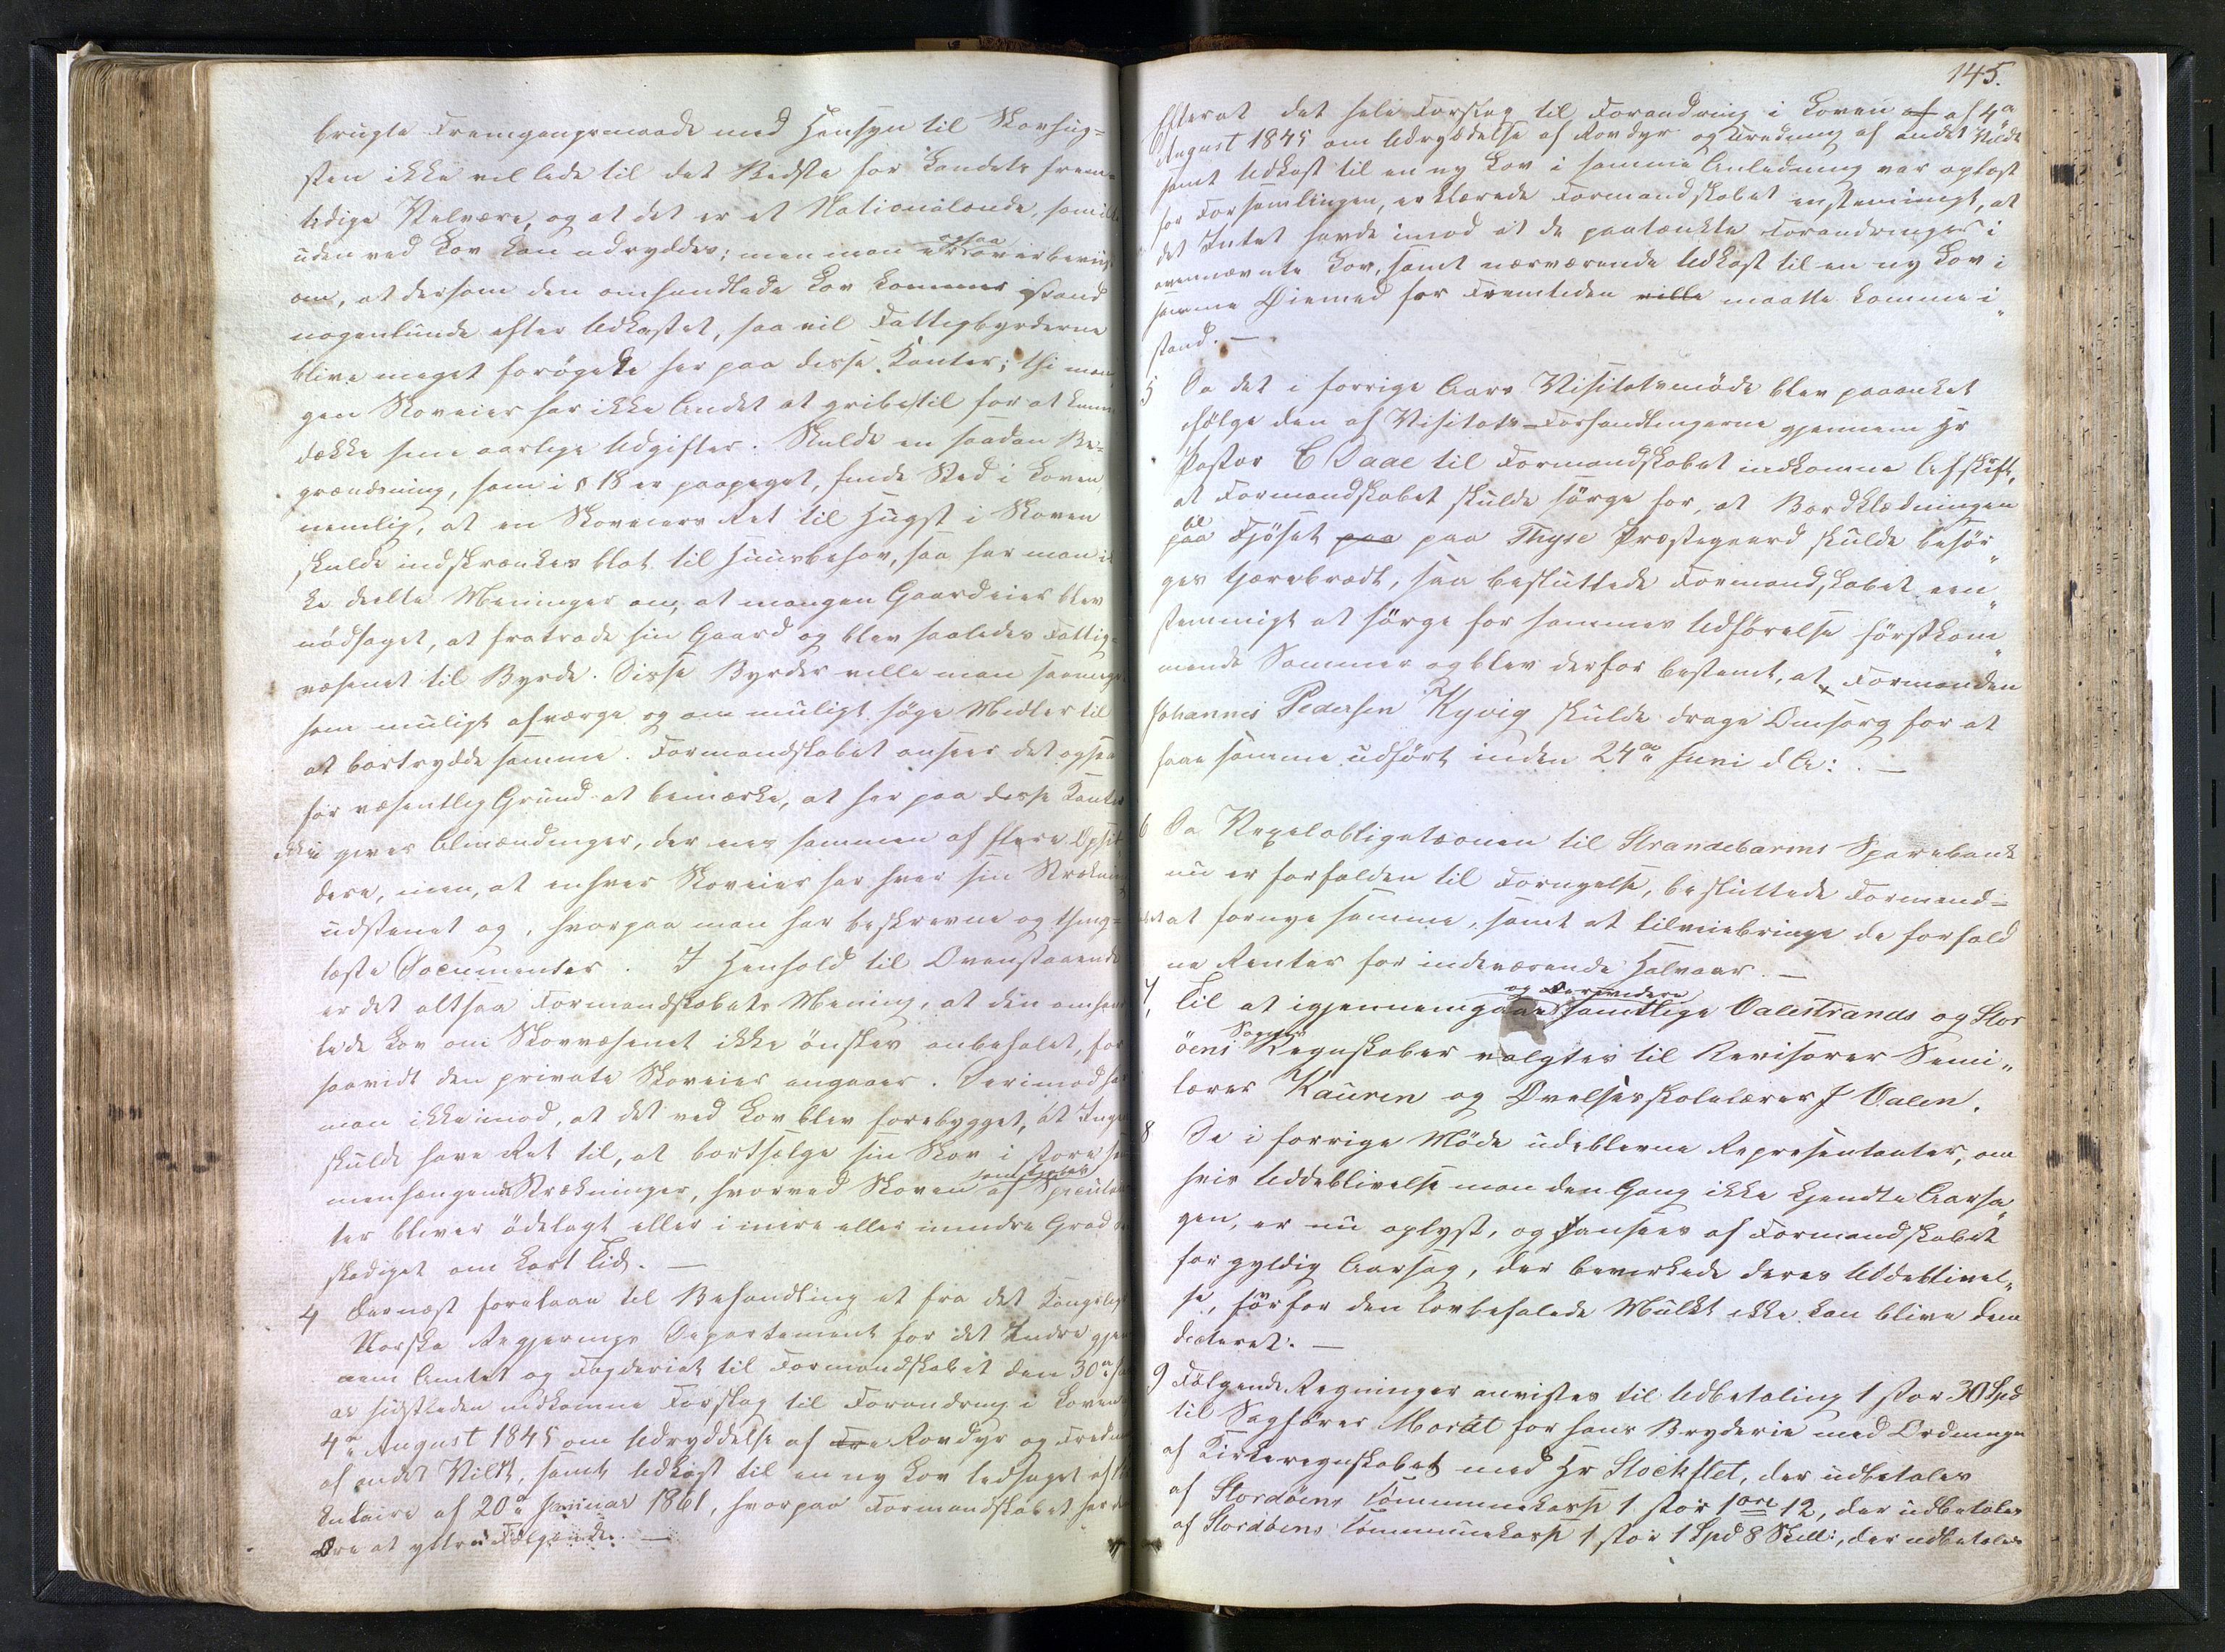 brugte Fremgangsmaade med Hensyn til Skovhug-
sten ikke vil lede til det Bedste for Landets frem-
tidige Velvære, og at det er et Nationalonde, som ikke
uden ved Lov kan udryddes; men man er ogsaa
om, at dersom den omhandlede Lov kommer istand
nogenlunde efter Udkastet, saa vil Fattigbyrderne
blive meget forøgede her paa disse Kanter; thi man-
gen Skoveier har ikke Andet at gribe til for at kunne
dække sine aarlige Udgifter. Skulde en saadan Be-
grændsning, som i § 18 er paapeget, finde Sted i Loven,
nemlig, at en Skoveiers Ret til Hugst i Skoven
skulde indskrænkes blot til Huusbehov, saa har man ik-
ke deelte Meninger om, at mangen Gaardeier blev
nødsaget, at fratræde sin Gaard og blev saaledes Fattig-
væsenet til Byrde. Disse Byrder ville man saameget
som muligt afværge og om muligt søge Midler til
at bortrydde samme. Formandskabet ansees det ogsaa
for væsentlig Grund at bemærke, at her paa disse Kanter
ikke gives Almændinger, der eies sammen af flere Opsid-
dere, men, at enhver Skoveier har hver sin Strækning
udstenet og, hvorpaa man har beskrevne og thing-
læste Documenter. I Henhold til Ovenstaaende
er det altsaa Formandskabets Mening, at den omhand-
lede Lov om Skovvæsenet ikke ønskes anbefalet, for
saavidt den private Skoveier angaaer. Derimod har
man ikke imod, at det ved Lov blev forebygget, at Ingen
skulde have Ret til, at bortsælge sin Skov i store sam-
menhængende Strækninger, hvorved Skoven af Speculan-
ter bliver ødelagt eller i mere eller mindre Grad be-
skadiget om kort Tid. —
4 Dernæst foretaan til Behandling et fra det Kongelige
Norske Regjerings Departement for det Indre gjen-
nem Amtet og Fogderiet til Formandskabet den 30te
sidstleden indkomne Forslag til Forandring i Loven
4de August 1845 om Udryddelse af Fre Rovdyr og Fredning
af andet Vildt, samt Udkast til en ny Lov ledsaget af
kulaire af 20de Januar 1861, hvorpaa Formandskabet har den
Ære at yttre Følgende. —
145.
Efterat det hele Forslag til Forandring i Loven af af 4de
August 1845 om Udryddelse af Rovdyr og Fredning af andet Vildt
samt Udkast til en ny Lov i samme Anledning var oplæst
for Forsamlingen, erklærede Formandskabet eenstemmigt, at
det Intet havde imod at de paatænkte Forandringer i
ovennævnte Lov, samt nærværende Udkast til en ny Lov i
samme Øiemed for Fremtiden ville maatte komme i
stand. —
5 Da det i forrige Aars Visitatsmøde blev paaanket
ifølge den af Visitats-Forhandlingerne gjennem Hr
Pastor C Daae til Formandskabet indkomne Afskrift,
at Formandskabet skulde sørge for, at Bordklædningen
til
paa Fjøset paa paa Thyse Præstegaard skulde besør-
ges tjærebrædt, saa besluttede Formandskabet een-
stemmigt at sørge for sammes Udførelse førstkom-
mende Sommer og blev derfor bestemt, at Formanden
Johannes Pedersen Kyvig skulde drage Omsorg for at
faae samme udført inden 24de Juni d A: —
6 Da Vexelobligationen til Strandebarms Sparebank
nu er forfalden til Fornyelse, besluttede Formand-
skabet at fornye samme, samt at tilveiebringe de forfald
ne Renter for indeværende Halvaar. —
og Revidere
7, Til at igjennemgaae samtlige Valestrands og Stor
Sognes
öens Regnskaber valgtes til Revisorer Semi-
lærer Kauren og Øvelsesskolelærer J Valen.
8 De i forrige Møde udeblevne Repræsentanter, om
hvis Uddeblivelse man den Gang ikke kjendte Aarsa-
gen, er nu oplyst, og ansees af Formandskabet
for gyldig Aarsag, der bevirkede deres Uddeblivel-
se, hvorfor den lovbefalede Mulkt ikke kan blive dem
dicteret. —
9 Følgende Regninger anvistes til Udbetaling 1 stor 30 Spd
til Sagfører Mordt for hans Bryderie med Ordningen
af Kirkeregnskabet med Hr Stockflet, der udbetales
af Stordöens Communekasse 1 stor 1 ort 12, der udbetales
af Stordöens Communekasse 1 stor 1 Spd 8 Skill:, der udbetales